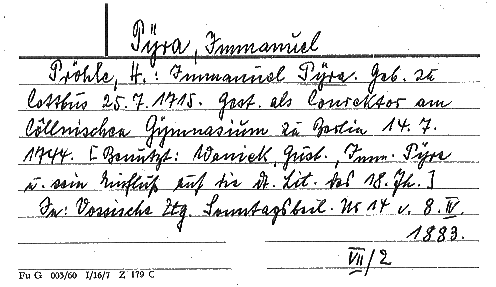 Pÿra, Immanuel
Pröhle, H.: Immanuel Pÿra. Geb. zu
Cottbus 25.7.1715. Gest. als Conrektor am
Cöllnischen Gÿmnasium zu Berlin 14.7.
1744. [Benutzt: Waniek, Gust., Imm. Pÿra
u. sein Einfluß auf die dt. Lit. des 18. Jh.]
In: Vossische Ztg. Sonntagsbeil. Nr 14 v. 8.IV.
1883.
VII/2
Fu G 003/60 I/16/7 Z 179 C